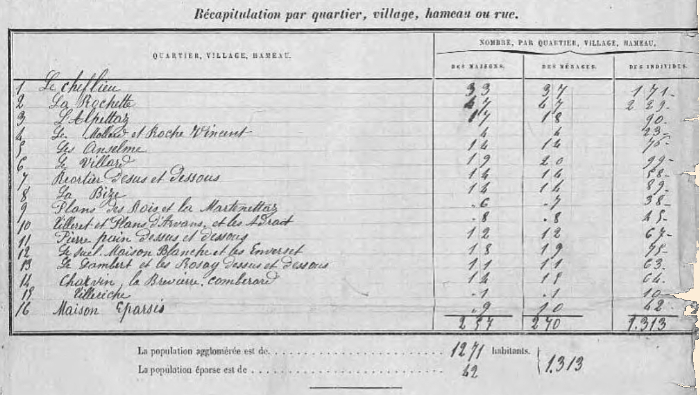 Récapitulation par quartier, village, hameau ou rue.
NOMBRE, PAR QUARTIER, VILLAGE, HAMEAU,
QUARTIER, VILLAGE, HAMEAU. DES MAISONS. DES MÉNAGES. DES INDIVIDUS.
1 Le cheflieu 33 37 171
2 La Rochette 47 47 229
3 L'Alpettaz 17 18 90
4 Le et Roche Vincent 4 4 23
5 Les Anselme 14 14
6 Le Villard 19 20 99
7 Reortier dessus et dessous 14 14
8 La Bize 14 14 89
9 Plans des Rois et les Martenettaz 6 7 38
10 Villeret et Plans d'Arvans, et les Adrait 8 8 45
11 Pierre pain dessus et dessous 12 12 67
12 Le suet Maison Blanche et les Enverset 18 19
13 Le Gambert et les Rosay dessus et dessous 11 11 63
14 Charvin, la comberard 14 64
15 1 1 10
16 Maison Eparsis 9 10 42
237 240 1.313
La population agglomérée est de 1271 habitants.
La population éparse est de 42
1.313